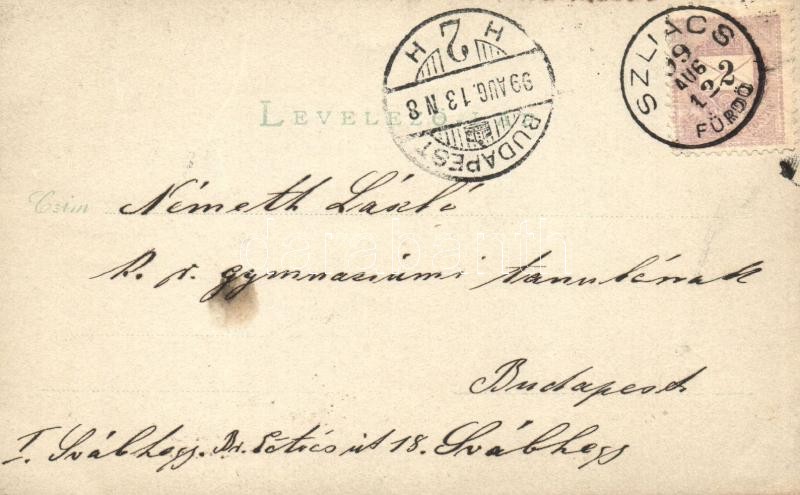 SZLIÁCS
99
AUG
12
FÜRDŐ
2
H 2 H
99 AUG. 13 N 8
BUDAPEST
LEVELEZŐ
Czim Németh László
gymnasiumi tanulónak
Budapest
I. Svábhegy. út 18. Svábhegy
darabanth